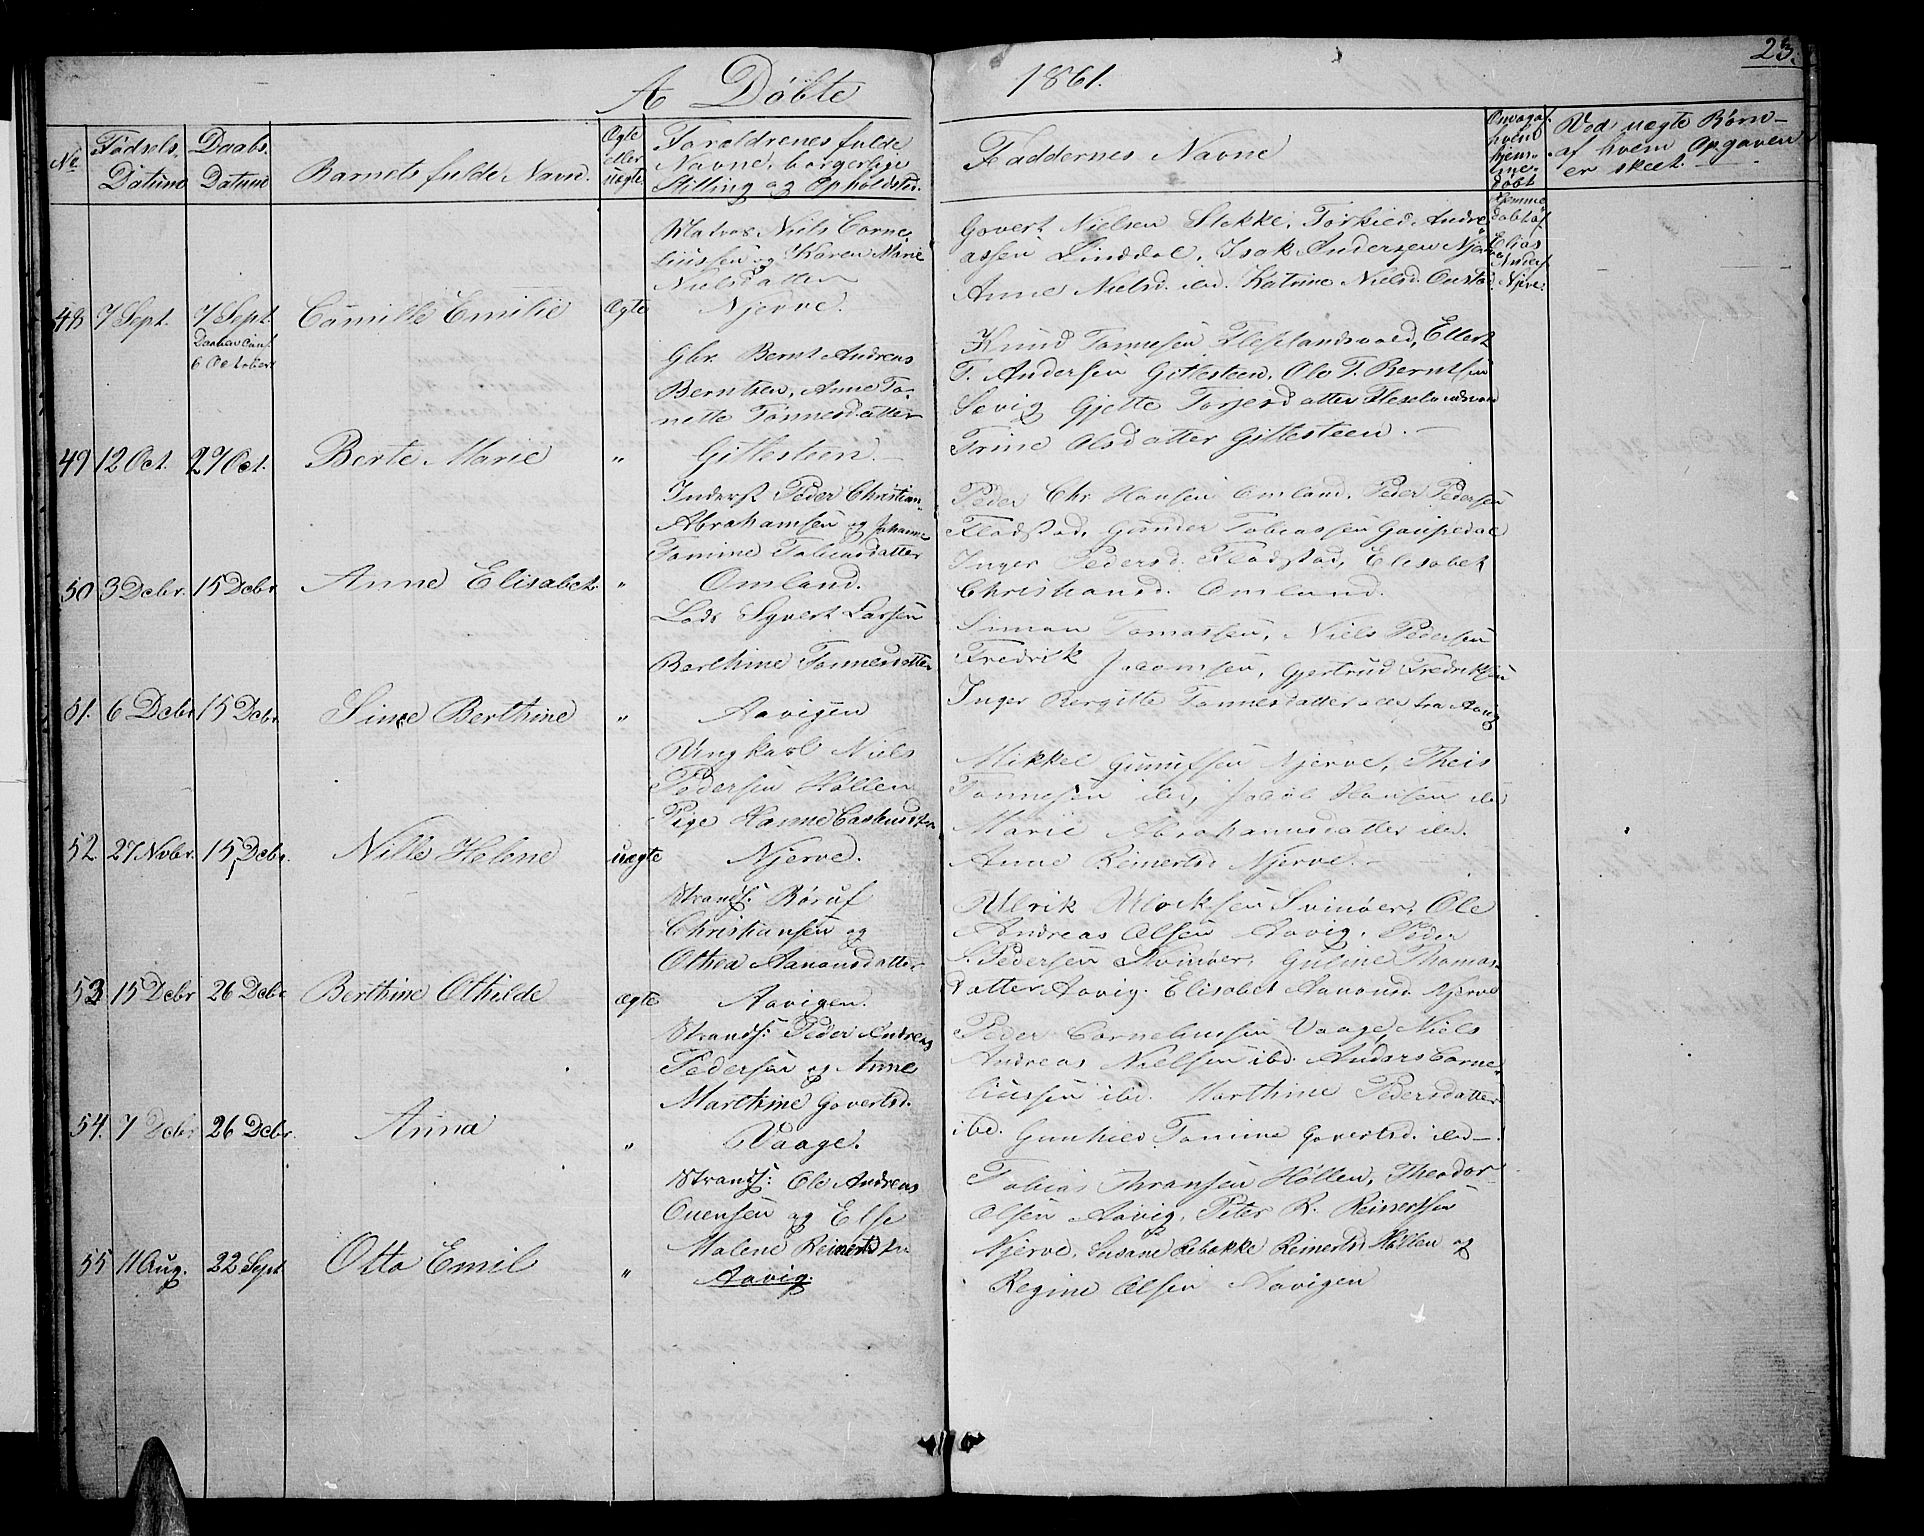 23.
A Döbte 1861.
No
Födsels Datum
Daabs Datum
Barnets fulde Navn.
Ægte eller uægte
Foræeldrenes fulde
Navne, borgerlige
Stilling og Opholdsted.
Faddernes Navne
hvem hjemmedöbt
Ved uægte Börn
af hvem Opgaven
er skeet.
48 7 Sept. 7 Sept. Camille Emilie Ægte
6 October
Matros Niels Corne-
liussen og Karen Marie
Nielsdatter
Njerve.
Govert Nielsen Stokke, Torkied Andre-
assen Linddal, Isak Andersen Njerve
Anne Nielsd. ibd. Katrine Nielsd.
Hjemme
döbt af
Elias
Anders.
Njerve
49 12 Oct. 27 Oct. Berte Marie "
Gbr. Bernt Andreas
Berntsen, Anne To-
nette Tönnesdatter
Gitlesteen.
Knud Tönnesen Fleselandsvold, Ellert
T. Andersen Gitlesteen, Ole T. Berntsen
Sævig Gjette Torjersdatter
Trine Olsdatter Gitlesteen.
50 3 Dcbr. 15 Dcbr. Anne Elisabet "
Inderst Peder Christian
Abrahamsen og Johanne
Tomine Tobiasdatter
Omland.
Peder Chr. Hansen Omland, Peder Pedersen
Flodstad, Gunder Tobiassen Gaupedal
Inger Pedersd. Flodstad, Elisabet
Christiansd. Omland.
51. 6 Dcbr 15 Dcbr. Sine Berthine "
Lods Syvert Larsen
Berthine Tönnesdatter
Aavigen
Simon Tomassen, Niels Pedersen
Fredrik Gjertrud Fredriksen
Inger Bergitte Tönnesdatter alle fra Aavig
52 27 Nvbr. 15 Dcbr. Nille Helene uægte
Ungkarl Niels
Pedersen Höllen
Pige Hanne
Njerve.
Mikkel Gunufsen Njerve, Theis
Tönnesen ibd, Jakob Hansen ibd
Marie Abrahamsdatter ibd.
Anne Reinertsd. Njerve.
53 15 Dcbr 26 Dcbr Berthine Othilde ægte
Strands. Röruf
Christiansen og
Othea Aanonsdatter
Aavigen.
Ulrik Ulriksen Svinöer, Ole
Andreas Olsen Aavig, Peder
S. Pedersen Svinöer, Guline Thomas-
datter Aavig. Elisabet Aanonsd. Njerve
54. 7 Dcbr 26 Dcbr. Anna "
Strands. Peder Andreas
Pedersen og Anne
Marthine Govertsd.
Vaage.
Peder Corneliussen Vaage, Niels
Andreas Nielsen ibd. Anders Corne-
liussen ibd. Marthine Pedersdatter
ibd. Gunhild Tomine Govertsd. ibd.
55 11 Aug. 22 Sept Otto Emil "
Strands. Ole Andreas
Ouensen og Else
Malene Reinertsdtr
Aavig.
Tobias Höllen, Theodor
Olsen Aavig, Peter R. Reinertsen
Njerve, Susane Rebekke Reinertsd. Höllen og
Regine Olsen Aavigen